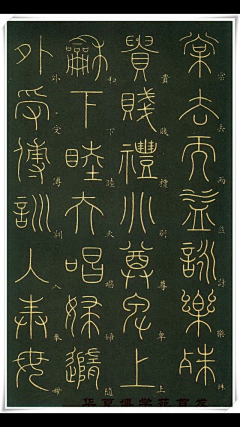 棠去而益詠樂殊
貴賤禮別尊卑上
和下睦夫唱婦隨
外受傅訓入奉母